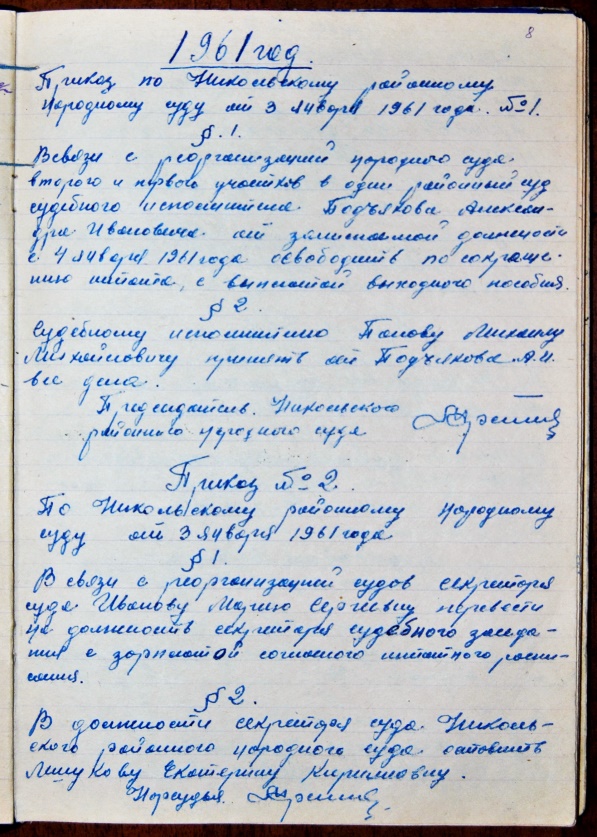 8
1961 год.
Приказ по Никольскому районному
народному суду от 3 января 1961 года. №1.
§.1.
В связи с реорганизацией народного суда
второго и первого участков в один районный суд
судебного исполнителя Подъякова Алексан-
дра Ивановича от занимаемой должности
с 4 января 1961 года освободить по сокраще-
нию штата, с выплатой выходного пособия.
§ 2.
Судебному исполнителю Попову Михаилу
Михайловичу принять от Подъякова А.И.
все дела.
Председатель. Никольского
районного народного суда
Приказ №2
По Никольскому районному народному
суду от 3 января 1961 года
§ 1.
В связи с реорганизацией судов секретаря
суда Иванову Марию Сергеевну перевести
на должность секретаря судебного заседа-
ния с зарплатой согласно штатного распи-
сания.
§ 2.
В должности секретаря суда Николь-
ского районного народного суда оставить
Екатерину Кирилловну.
Нарсудья.